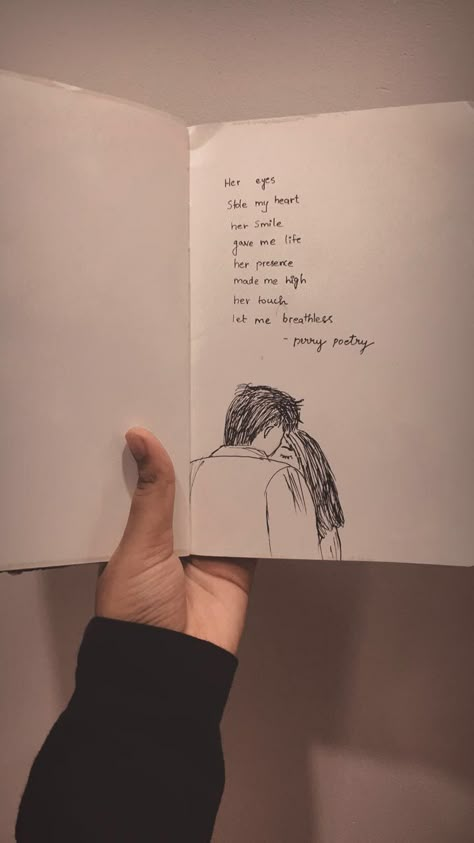 Her eyes
Stole my heart
her smile
gave me life
her presence
made me high
her touch
let me breathless
- perry poetry